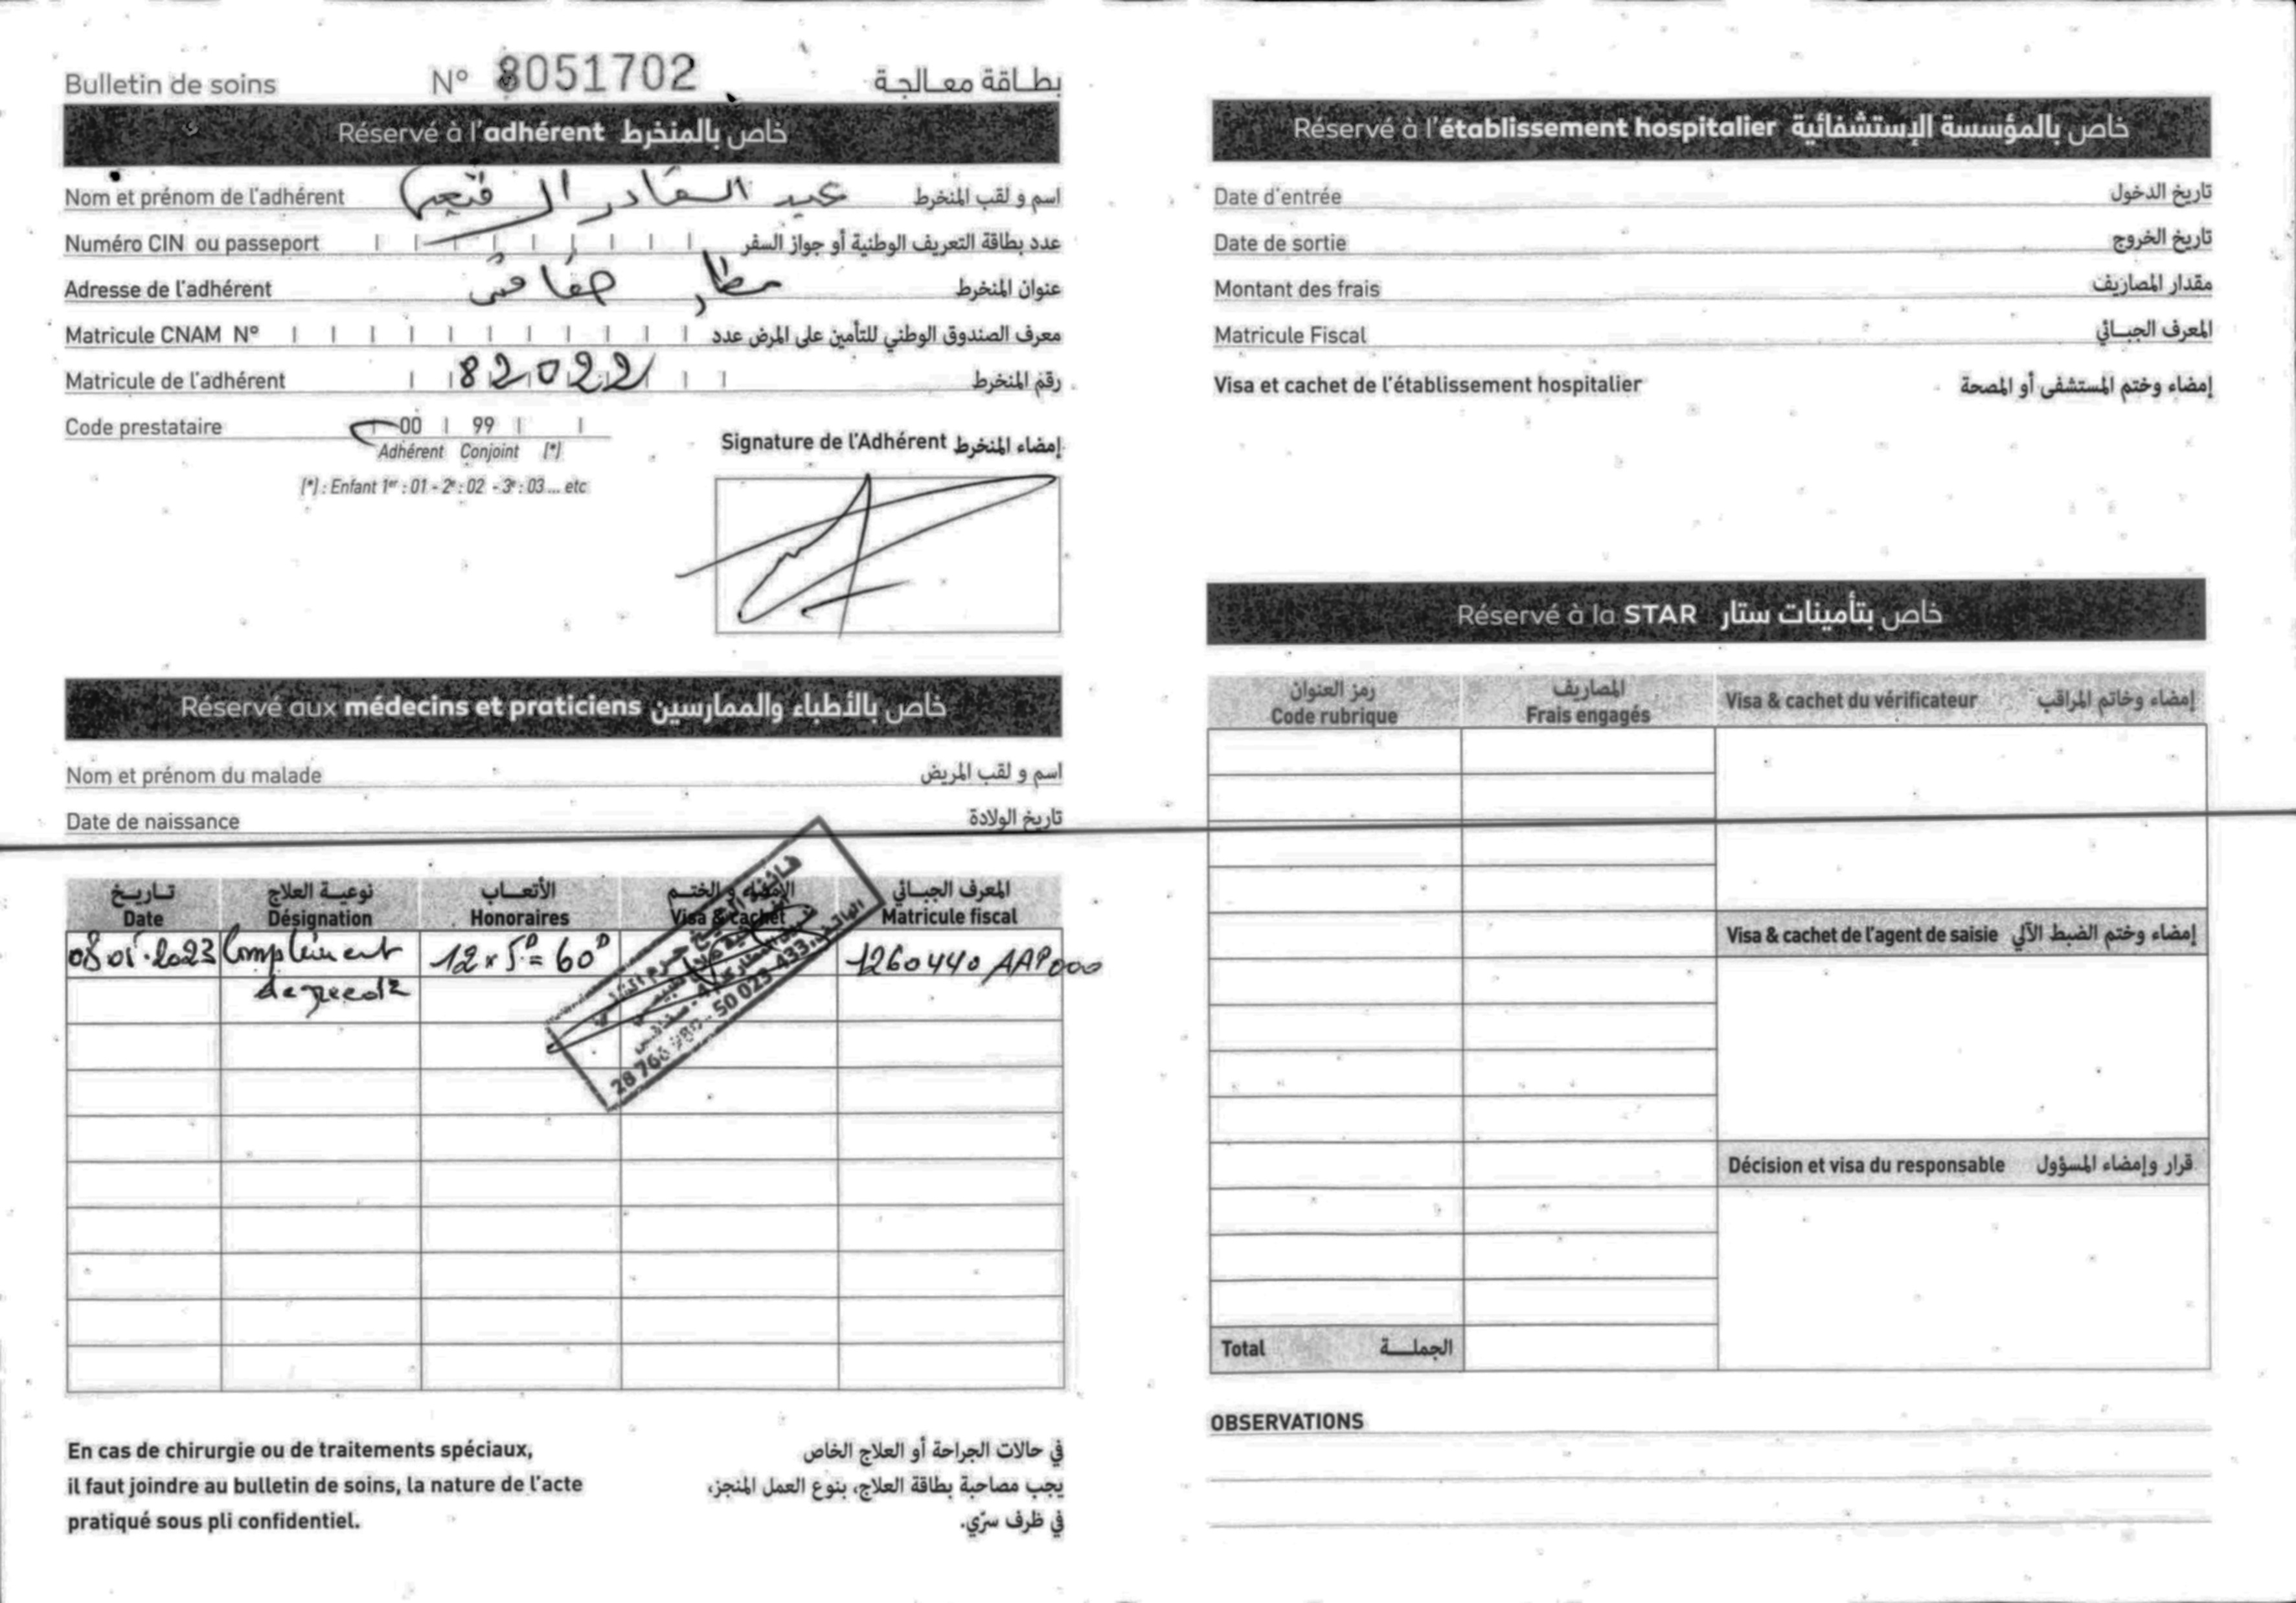 Bulletin de soins N° 8051702 بطاقة معالجة
Réservé à l'adhérent خاص بالمنخرط
Nom et prénom de l'adhérent عبد القادر اسم و لقب المنخرط
Numéro CIN ou passeport عدد بطاقة التعريف الوطنية أو جواز السفر
Adresse de l'adhérent مطار صفاقس عنوان المنخرط
Matricule CNAM N° معرف الصندوق الوطني للتأمين على المرض عدد
Matricule de l'adhérent 82022 رقم المنخرط
Code prestataire 00 99
Adhérent Conjoint (*)
(*) : Enfant 1er : 01 - 2e : 02 - 3e : 03 ... etc
Signature de l'Adhérent إمضاء المنخرط
Réservé aux médecins et praticiens خاص بالأطباء والممارسين
Nom et prénom du malade اسم و لقب المريض
Date de naissance تاريخ الولادة
تاريخ نوعية العلاج الأتعاب الإمضاء و الختم المعرف الجبائي
Date Désignation Honoraires Visa & cachet Matricule fiscal
08.01.2023 Complément 12 x 5D = 60D 1260440 AAP000
50 023 433
En cas de chirurgie ou de traitements spéciaux,
il faut joindre au bulletin de soins, la nature de l'acte
pratiqué sous pli confidentiel.
في حالات الجراحة أو العلاج الخاص
يجب مصاحبة بطاقة العلاج، بنوع العمل المنجز،
في ظرف سرّي.
Réservé à l'établissement hospitalier خاص بالمؤسسة الإستشفائية
Date d'entrée تاريخ الدخول
Date de sortie تاريخ الخروج
Montant des frais مقدار المصاريف
Matricule Fiscal المعرف الجبائي
Visa et cachet de l'établissement hospitalier إمضاء وختم المستشفى أو المصحة
Réservé à la STAR خاص بتأمينات ستار
رمز العنوان المصاريف
Code rubrique Frais engagés Visa & cachet du vérificateur إمضاء وخاتم المراقب
Visa & cachet de l'agent de saisie إمضاء وختم الضبط الآلي
Décision et visa du responsable قرار وإمضاء المسؤول
Total الجملة
OBSERVATIONS